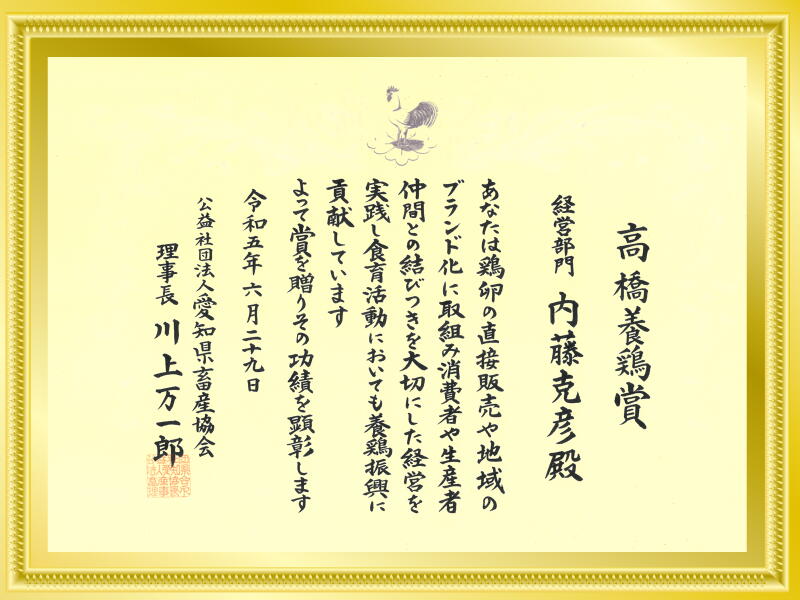 高橋養鶏賞
経営部門 内藤克彦殿
あなたは鶏卵の直接販売や地域の
ブランド化に取組み消費者や生産者
仲間との結びつきを大切にした経営を
実践し食育活動においても養鶏振興に
貢献しています
よって賞を贈りその功績を顕彰します
令和五年六月二十九日
公益社団法人愛知県畜産協会
理事長 川上万一郎